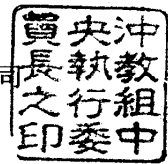 沖教組中
央執行委
員長之印
司